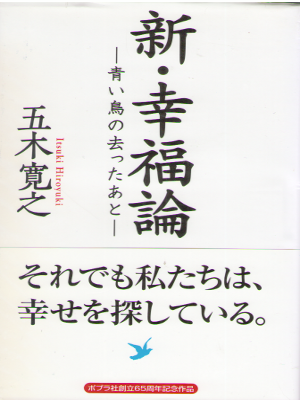 新・幸福論
―青い鳥の去ったあと―
五木寛之
Itsuki Hiroyuki
それでも私たちは、
幸せを探している。
ポプラ社創立65周年記念作品